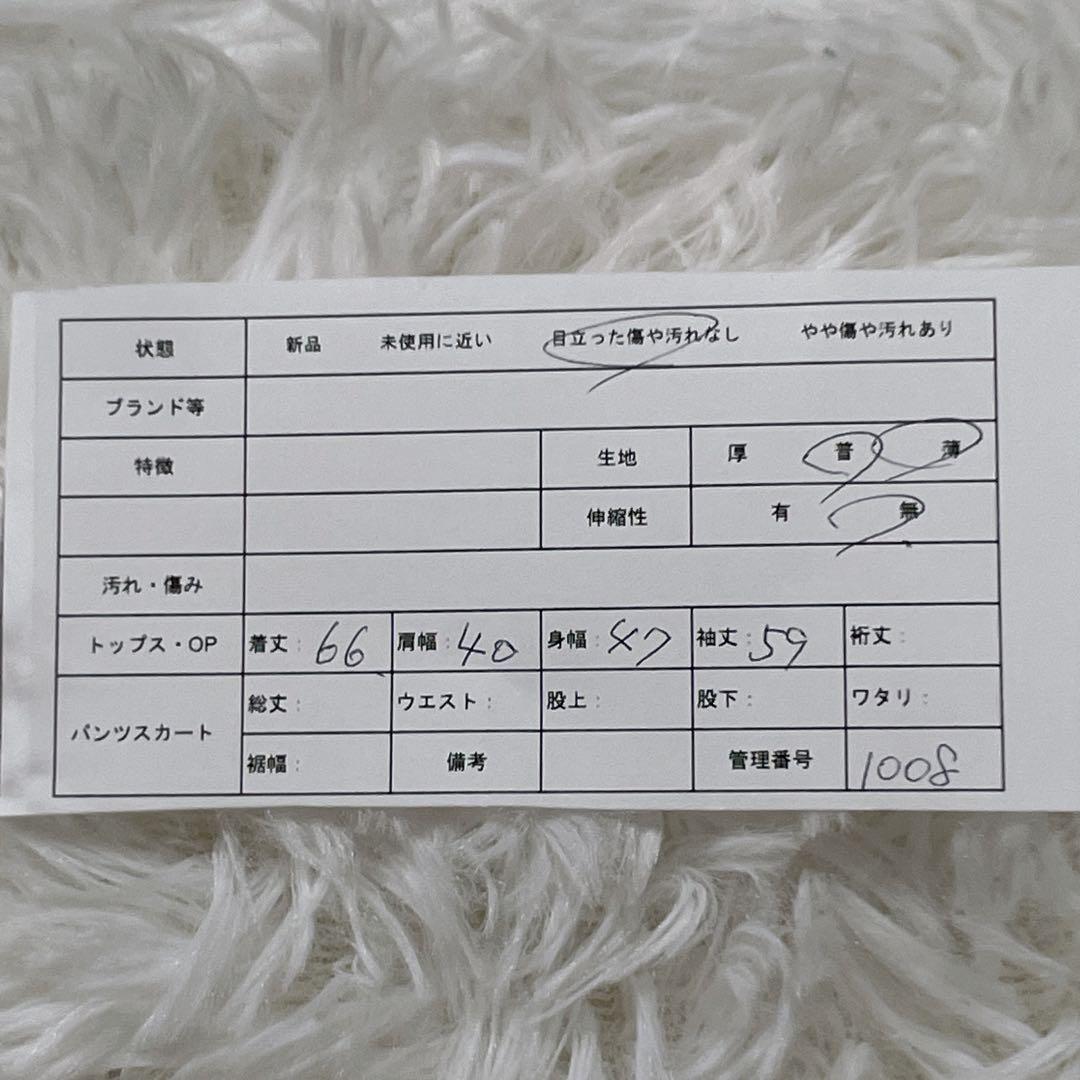 状態 新品 未使用に近い 目立った傷や汚れなし やや傷や汚れあり
ブランド等
特徴 生地 厚 普 薄
伸縮性 有 無
汚れ・傷み
トップス・OP 着丈: 66 肩幅: 40 身幅: 47 袖丈: 59 裄丈:
パンツスカート 総丈: ウエスト: 股上: 股下: ワタリ:
裾幅: 備考 管理番号 1008